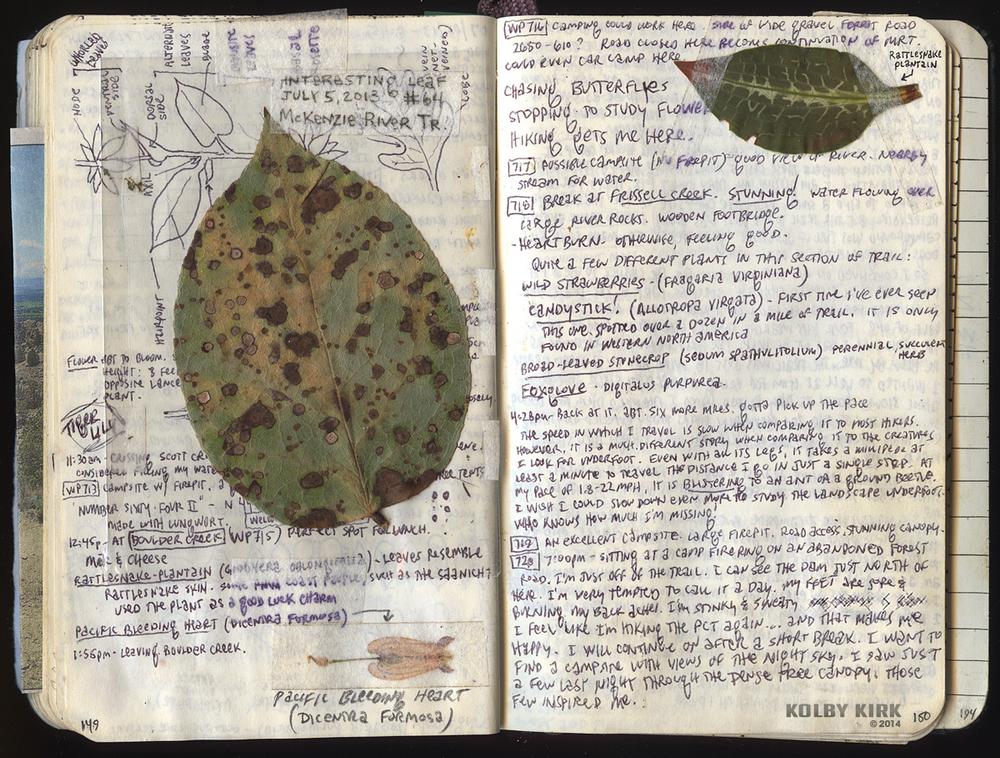 WHORLED LEAVES
ALTERNATE LEAVES
BLADE
LEAVES
NODE
VENTRAL SIDE
DORSAL SIDE
AXIL
HAIRPOINT
INTERESTING LEAF
JULY 5, 2013 #64
McKENZIE RIVER TR.
FLOWER
HEIGHT: 3 FEE
OPPOSITE LANCE
PLANT.
TIGER LILY
11:30am - CROSSING SCOTT CR
CONSIDERED FILLING MY WATE
WP713 CAMPSITE W/ FIREPIT. A
NUMBER SIXTY-FOUR II" - N
MADE WITH LUNGWORT.
12:45p - AT BOULDER CREEK (WP715) PERFECT SPOT FOR LUNCH.
MAC & CHEESE
RATTLESNAKE-PLANTAIN (GOODYERA OBLONGIFOLIA) - LEAVES RESEMBLE
RATTLESNAKE SKIN. SOME COAST PEOPLE, SUCH AS THE SAANICH?
USED THE PLANT AS A GOOD LUCK CHARM
PACIFIC BLEEDING HEART (DICENTRA FORMOSA)
1:56pm - LEAVING BOULDER CREEK.
PACIFIC BLEEDING HEART
(DICENTRA FORMOSA)
149
WP716 CAMPING COULD WORK HERE. SIDE OF WIDE GRAVEL FOREST ROAD
2650-610? ROAD CLOSED HERE BECOMES CONTINUATION OF MRT.
COULD EVEN CAR CAMP HERE.
RATTLESNAKE PLANTAIN
CHASING BUTTERFLIES
STOPPING TO STUDY FLOWE
HIKING GETS ME HERE.
717 POSSIBLE CAMPSITE (NO FIREPIT) - GOOD VIEW OF RIVER. NEARBY
STREAM FOR WATER.
718 BREAK AT FRISSELL CREEK. STUNNING! WATER FLOWING OVER
LARGE RIVER ROCKS. WOODEN FOOTBRIDGE.
- HEARTBURN. OTHERWISE, FEELING GOOD.
QUITE A FEW DIFFERENT PLANTS IN THIS SECTION OF TRAIL:
WILD STRAWBERRIES - (FRAGARIA VIRGINIANA)
CANDYSTICK! (ALLOTROPA VIRGATA) - FIRST TIME I'VE EVER SEEN
THIS ONE. SPOTTED OVER A DOZEN IN A MILE OF TRAIL. IT IS ONLY
FOUND IN WESTERN NORTH AMERICA
BROAD-LEAVED STONECROP (SEDUM SPATHULITOLIUM) PERENNIAL SUCCULENT HERB
FOXGLOVE - DIGITALUS PURPUREA.
4:28pm - BACK AT IT. ABT. SIX MORE MILES. GOTTA PICK UP THE PACE
THE SPEED IN WHICH I TRAVEL IS SLOW WHEN COMPARING IT TO MOST HIKERS.
HOWEVER, IT IS A MUCH DIFFERENT STORY WHEN COMPARING IT TO THE CREATURES
I LOOK FOR UNDERFOOT. EVEN WITH ALL ITS LEGS, IT TAKES A MILLIPEDE AT
LEAST A MINUTE TO TRAVEL THE DISTANCE I GO IN JUST A SINGLE STEP. AT
MY PACE OF 1.8-2.2MPH, IT IS BLISTERING TO AN ANT OR A GROUND BEETLE.
I WISH I COULD SLOW DOWN EVEN MORE TO STUDY THE LANDSCAPE UNDERFOOT.
WHO KNOWS HOW MUCH I'M MISSING.
719 AN EXCELLENT CAMPSITE. LARGE FIREPIT. ROAD ACCESS, STUNNING CANOPY.
720 7:00pm - SITTING AT A CAMP FIRE RING ON AN ABANDONED FOREST
ROAD. I'M JUST OFF OF THE TRAIL. I CAN SEE THE DAM JUST NORTH OF
HERE. I'M VERY TEMPTED TO CALL IT A DAY. MY FEET ARE SORE &
BURNING, MY BACK ACHES. I'M STINKY & SWEATY
I FEEL LIKE I'M HIKING THE PCT AGAIN... AND THAT MAKES ME
HAPPY. I WILL CONTINUE ON AFTER A SHORT BREAK. I WANT TO
FIND A CAMPSITE WITH VIEWS OF THE NIGHT SKY. I SAW JUST
A FEW LAST NIGHT THROUGH THE DENSE TREE CANOPY. THOSE
FEW INSPIRED ME.
KOLBY KIRK
© 2014
150
194